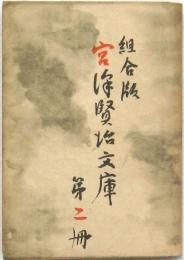 組合版
宮澤賢治文庫
第二冊